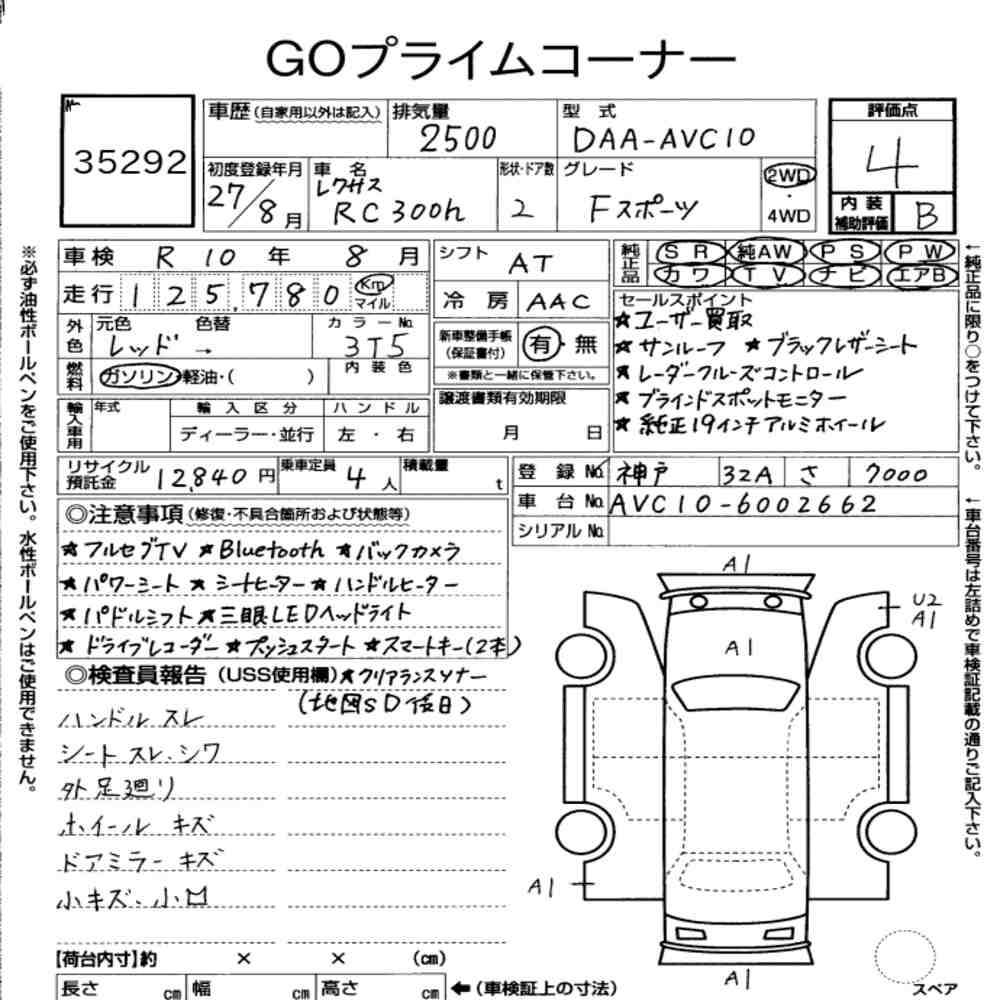 GOプライムコーナー
35292
車歴(自家用以外は記入)
排気量
2500
型式
DAA-AVC10
評価点
4
内装補助評価
B
初度登録年月
27/8月
車名
レクサス
RC300h
形状・ドア数
2
グレード
Fスポーツ
2WD
・
4WD
車検 R 10年 8月
走行 125,780 Km マイル
外色 元色 色替
レッド →
カラーNo.
3T5
燃料 ガソリン・軽油・( )
内装色
輸入車用 年式
輸入区分
ディーラー・並行
ハンドル
左・右
シフト AT
冷房 AAC
新車整備手帳(保証書付) 有・無
※書類と一緒に保管下さい。
譲渡書類有効期限
月 日
純正品 SR 純AW PS PW
カワ TV ナビ エアB
セールスポイント
★ユーザー買取
★サンルーフ ★ブラックレザーシート
★レーダークルーズコントロール
★ブラインドスポットモニター
★純正19インチアルミホイール
リサイクル預託金 12,840円
乗車定員 4人
積載量 t
登録No. 神戸 32A さ 7000
車台No. AVC10-6002662
シリアルNo.
◎注意事項(修復・不具合箇所および状態等)
★フルセグTV ★Bluetooth ★バックカメラ
★パワーシート ★シートヒーター ★ハンドルヒーター
★パドルシフト ★三眼LEDヘッドライト
★ドライブレコーダー ★プッシュスタート ★スマートキー(2本)
◎検査員報告(USS使用欄)★クリアランスソナー
(地図SD後日)
ハンドル スレ
シート スレ、シワ
外 足廻り
ホイール キズ
ドアミラー キズ
小キズ、小凹
A1
U2
A1
A1
A1
A1
【荷台内寸】約 × × (cm)
長さ cm 幅 cm 高さ cm ←(車検証上の寸法)
スペア
※必ず油性ボールペンをご使用下さい。水性ボールペンはご使用できません。
←純正品に限り○をつけて下さい。
←車台番号は左詰めで車検証記載の通りご記入下さい。